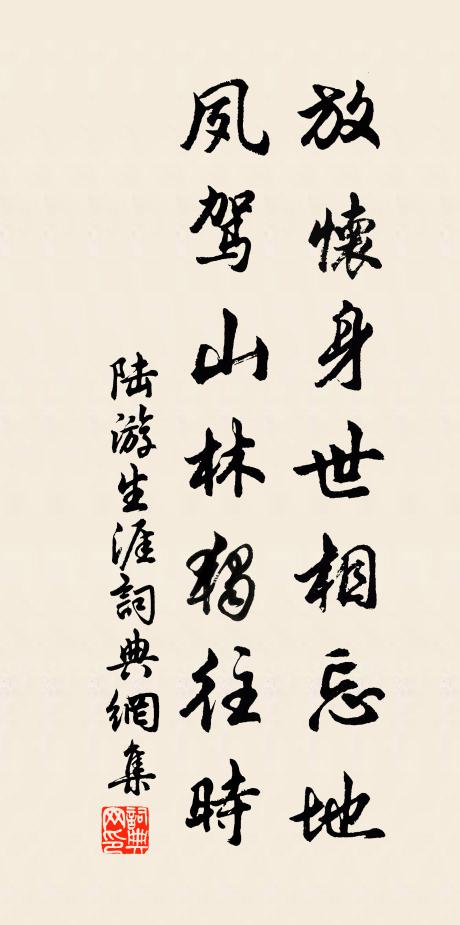 放懷身世相忘地
夙駕山林獨往時
陸游生涯詞典網集
詞典网印